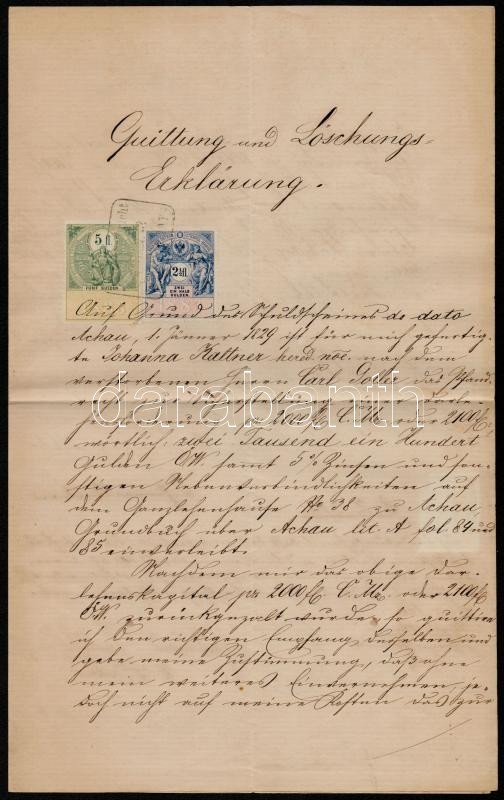 Quittung und Löschungs-
Erklärung.
5 fl
FÜNF GULDEN
2½ fl
ZWEI
EIN HALB
GULDEN
Auf Grund des Schuldscheines de dato
Achau, 1. Jänner 1829 ist für mich gefertig-
te Johanna Kattner nach dem
verstorbenen Herrn Carl Goller das Pfand-
recht zur Sicherstellung der Darle-
pr 2000 fl. C. Mz. oder 2100 fl.
wörtlich: zwei Tausend ein Hundert
Gulden ÖW. samt 5% Zinsen und son-
stigen Nebenverbindlichkeiten auf
dem Ganzlehenhause No 38 zu Achau,
Grundbuch über Achau lit. A fol. 84 und
85 einverleibt.
Nachdem mir das obige Dar-
lehenskapital pr 2000 fl. C. Mz. oder 2100 fl.
ÖW. zurückgezalt wurde, so quittire
ich den richtigen Empfang desselben und
gebe meine Zustimmung, daß ohne
mein weiteres Einvernehmen, je-
doch nicht auf meine Kosten das zur
darabanth